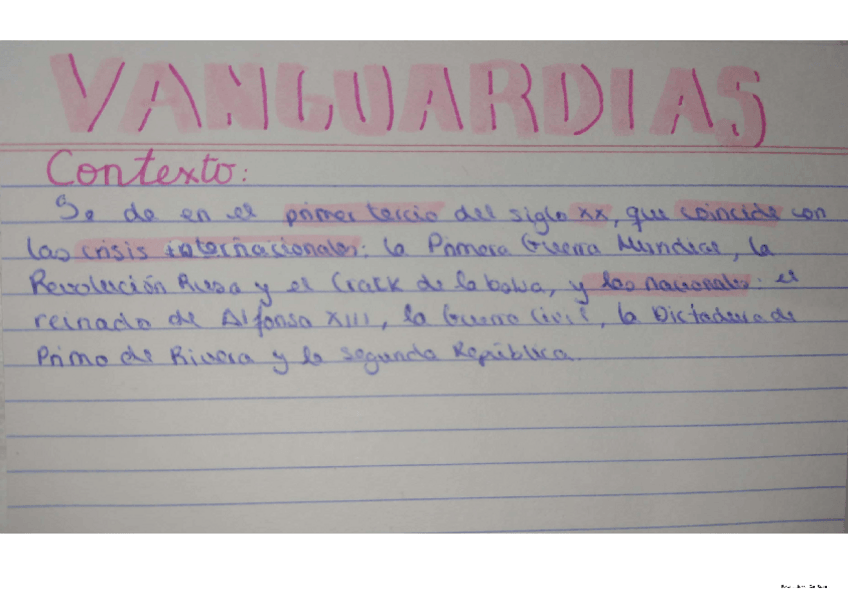 VANGUARDIAS
Contexto:
Se da en el primer tercio del siglo XX, que coincide con
las crisis internacionales: la Primera Guerra Mundial, la
Revolución Rusa y el Crack de la bolsa, y las nacionales: el
reinado de Alfonso XIII, la Guerra Civil, la Dictadura de
Primo de Rivera y la segunda República.